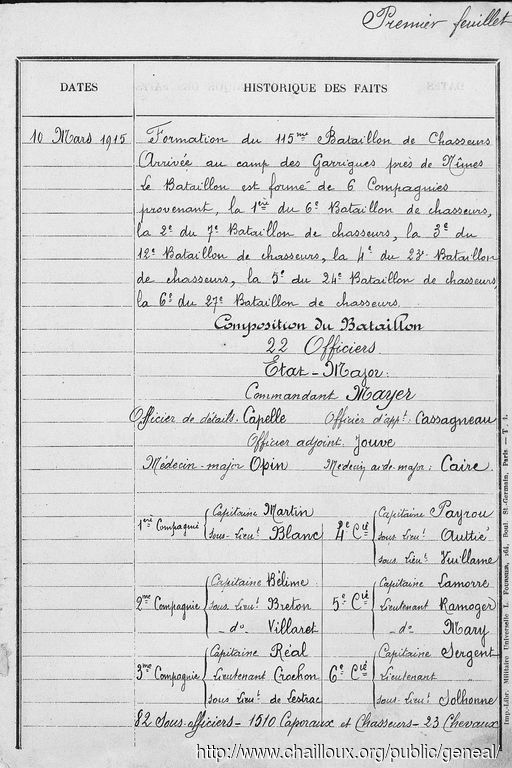 Premier feuillet
DATES
HISTORIQUE DES FAITS
10 Mars 1915
Formation du 115me Bataillon de Chasseurs
Arrivée au camp des Garrigues près de Nîmes
Le Bataillon est formé de 6 Compagnies
provenant, la 1ère du 6e Bataillon de chasseurs,
la 2e du 7e Bataillon de chasseurs, la 3e du
12e Bataillon de chasseurs, la 4e du 23e Bataillon
de chasseurs, la 5e du 24e Bataillon de chasseurs,
la 6e du 27e Bataillon de chasseurs.
Composition du Bataillon
22 Officiers
Etat-Major:
Commandant Mayer
Officier de détails: Capelle Officier d'appt: Cassagneau
Officier adjoint Jouve
Médecin-major Opin Médecin aide-major: Caire
1ère Compagnie
Capitaine Martin
sous-lieut Blanc
4e Cie
Capitaine Payrou
sous lieut Autié
sous lieut Vuillame
2me Compagnie
Capitaine Bélime
sous lieut Breton
-do- Villaret
5e Cie
Capitaine Lamorre
Lieutenant Ramoger
-do- Mary
3me Compagnie
Capitaine Réal
Lieutenant Crochon
sous lieut de Lestrac
6e Cie
Capitaine Sergent
Lieutenant
sous lieut Solhonne
82 Sous-officiers - 1510 Caporaux et Chasseurs - 23 Chevaux
Imp.-Libr. Militaire Universelle L. Fournier, 264, Boul. St-Germain, Paris — T. 1.
http://www.chailloux.org/public/geneal/